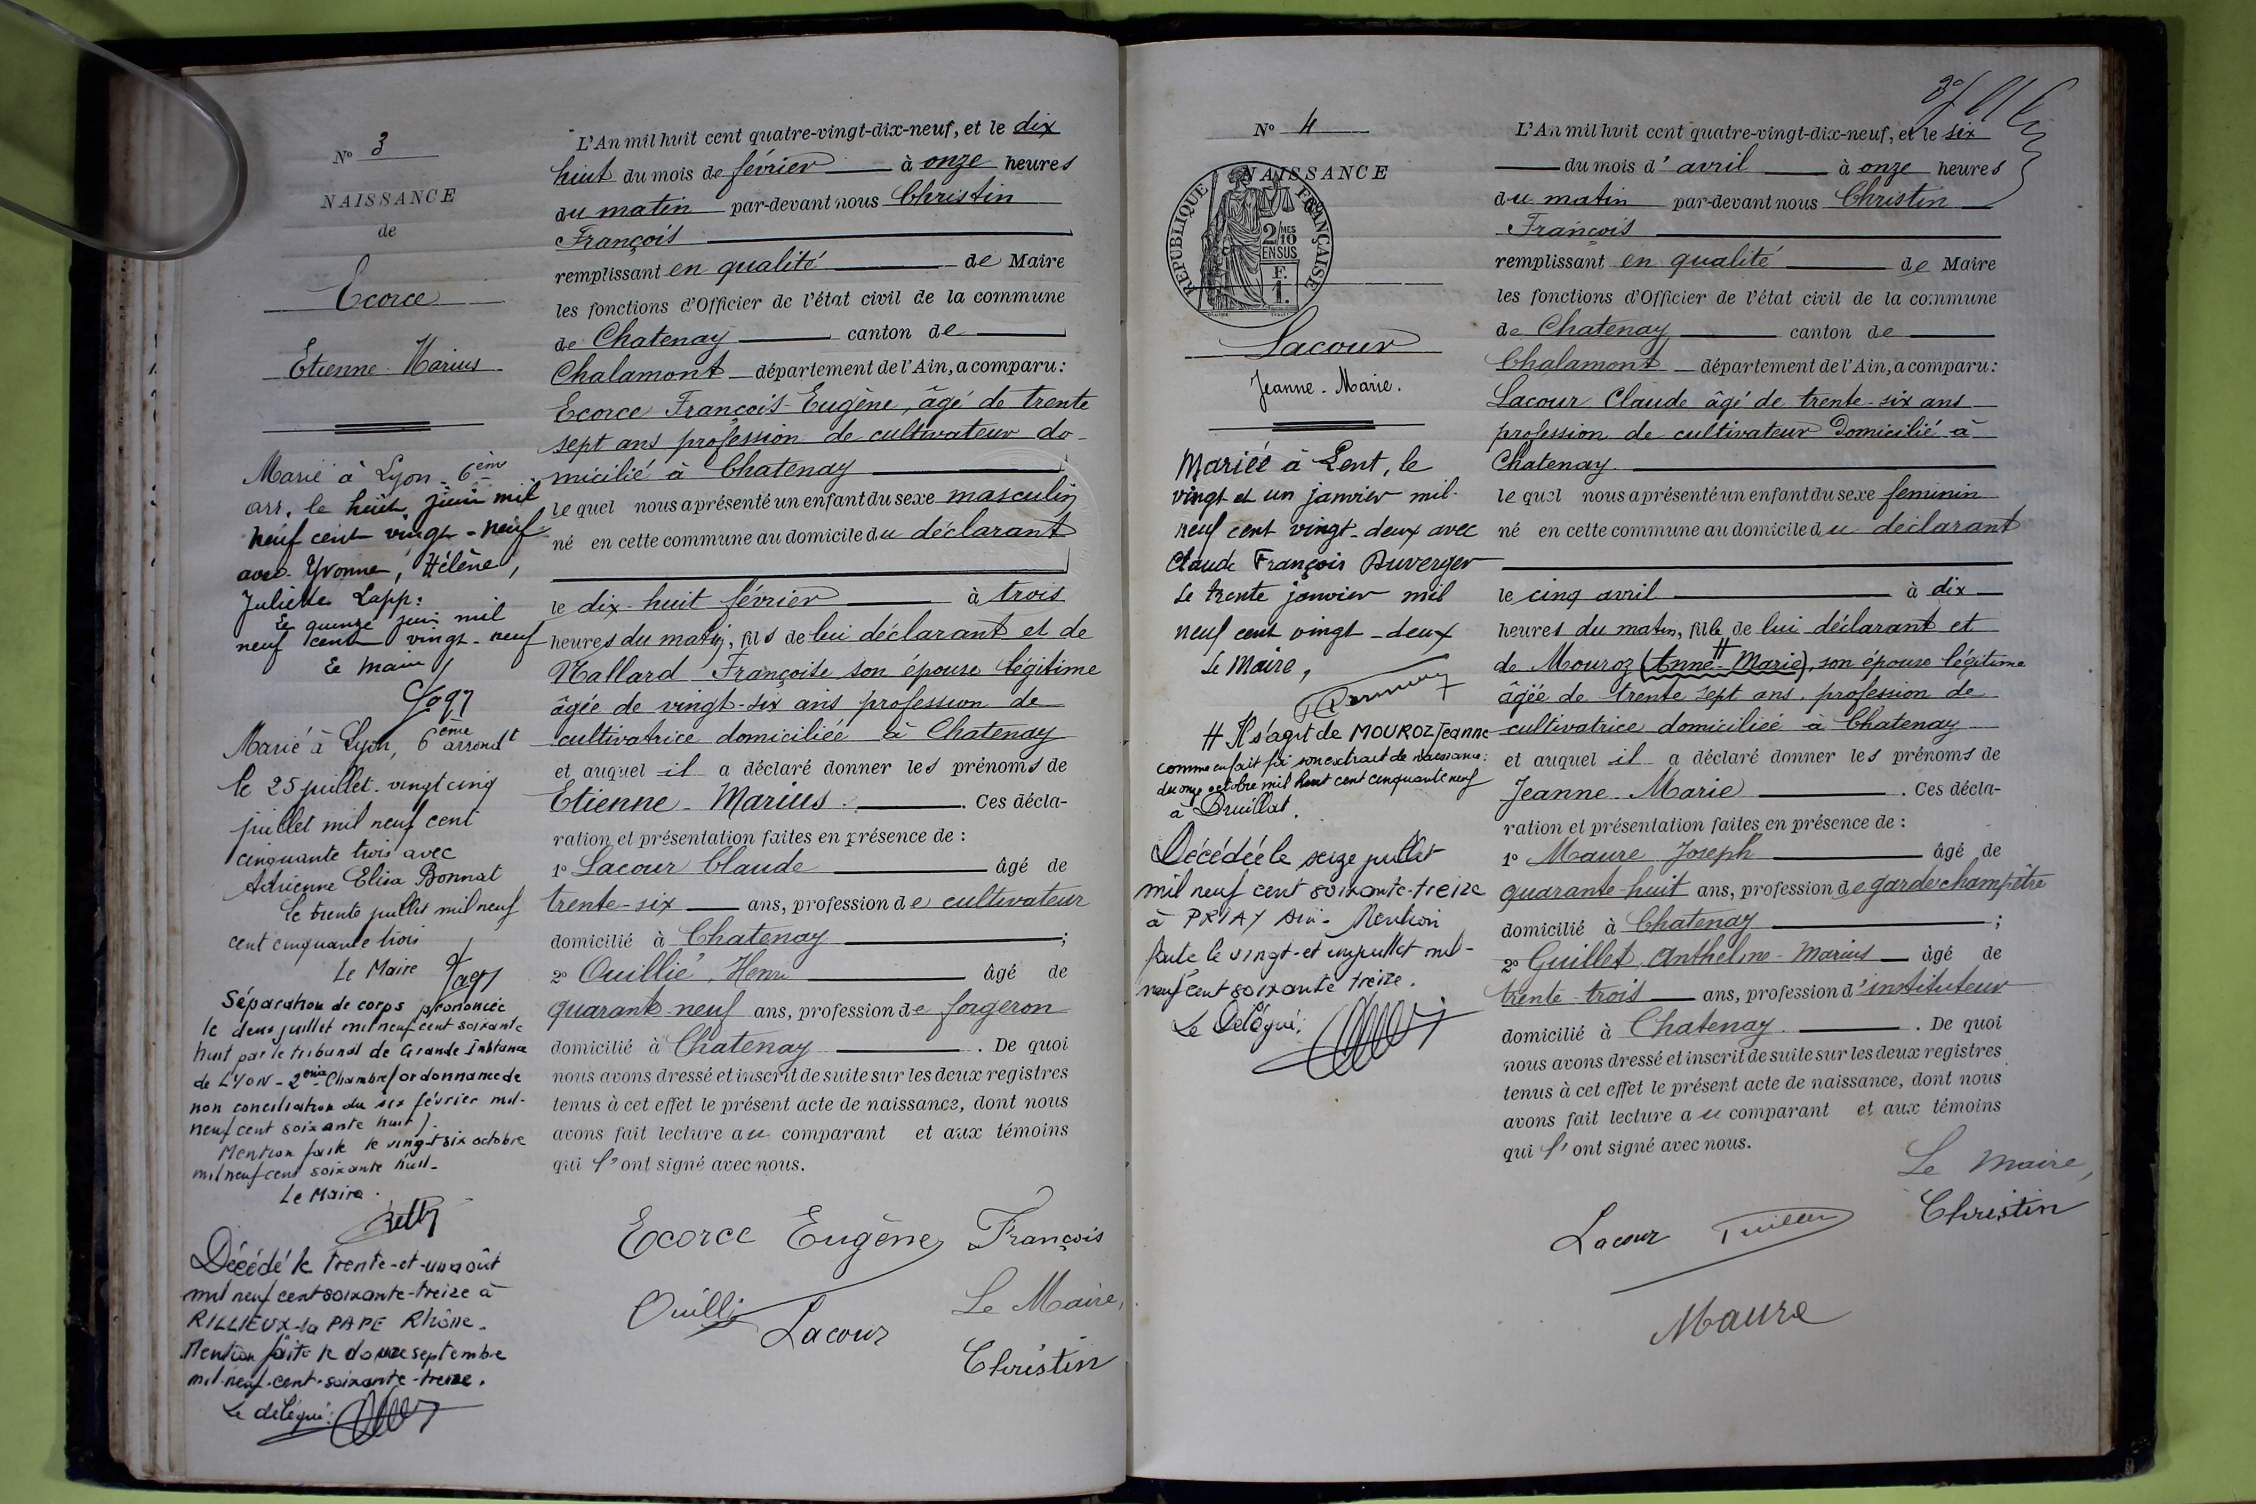 N° 3
NAISSANCE
de
Ecorce
Etienne-Marius
Marié à Lyon-6ème
arr. le huit juin mil
neuf cent vingt-neuf
avec Yvonne, Hélène,
Juliette Lapp.
Le quinze juin mil
neuf cent vingt-neuf
Le Maire,
Marié à Lyon, 6ème arrondt
le 25 juillet. vingt cinq
juillet mil neuf cent
cinquante trois avec
Adrienne Elisa Bonnat
le trente juillet mil neuf
cent cinquante trois
Le Maire
Séparation de corps prononcée
le deux juillet mil neuf cent soixante
huit par le tribunal de Grande Instance
de LYON - 2ème Chambre (ordonnance de
non conciliation du six février mil-
neuf cent soixante huit).
Mention faite le vingt six octobre
mil neuf cent soixante huit-
Le Maire.
Décédé le trente-et-un août
mil neuf cent soixante-treize à
RILLIEUX-la PAPE Rhône-
Mention faite le douze septembre
mil-neuf-cent-soixante-treize.
Le délégué:
L'An mil huit cent quatre-vingt-dix-neuf, et le dix
huit du mois de février à onze heures
du matin par-devant nous Christin
François
remplissant en qualité de Maire
les fonctions d'Officier de l'état civil de la commune
de Chatenay canton de
Chalamont département de l'Ain, a comparu:
Ecorce François-Eugène, âgé de trente
sept ans profession de cultivateur do-
micilié à Chatenay
le quel nous a présenté un enfant du sexe masculin
né en cette commune au domicile du déclarant
le dix-huit février à trois
heures du matin, fils de lui déclarant et de
Mallard Françoise son épouse légitime
âgée de vingt-six ans profession de
cultivatrice domiciliée à Chatenay
et auquel il a déclaré donner les prénoms de
Etienne-Marius. Ces décla-
ration et présentation faites en présence de :
1° Lacour Claude âgé de
trente-six ans, profession de cultivateur
domicilié à Chatenay ;
2° Ouillié Henri âgé de
quarante-neuf ans, profession de forgeron
domicilié à Chatenay . De quoi
nous avons dressé et inscrit de suite sur les deux registres
tenus à cet effet le présent acte de naissance, dont nous
avons fait lecture au comparant et aux témoins
qui l'ont signé avec nous.
Ecorce Eugène François
Ouillié Lacour
Le Maire,
Christin
N° 4
NAISSANCE
RÉPUBLIQUE FRANÇAISE
2/10 MES
EN SUS
F.
1.
Lacour
Jeanne-Marie.
Mariée à Lent, le
vingt et un janvier mil-
neuf cent vingt-deux avec
Claude François Duverger
Le trente janvier mil
neuf cent vingt-deux
Le Maire,
# Il s'agit de MOUROZ Jeanne
comme en fait foi son extrait de naissance:
du onze octobre mil huit cent cinquante neuf
à Druillat.
Décédée le seize juillet
mil neuf cent soixante-treize
à PRIAY Ain- Mention
faite le vingt-et un juillet mil-
neuf cent soixante treize.
Le Délégué:
L'An mil huit cent quatre-vingt-dix-neuf, et le six
du mois d'avril à onze heures
du matin par-devant nous Christin
François
remplissant en qualité de Maire
les fonctions d'Officier de l'état civil de la commune
de Chatenay canton de
Chalamont département de l'Ain, a comparu:
Lacour Claude âgé de trente-six ans
profession de cultivateur Domicilié à
Chatenay
le quel nous a présenté un enfant du sexe feminin
né en cette commune au domicile du déclarant
le cinq avril à dix
heures du matin, fille de lui déclarant et
#
de Mouroz (Anne-Marie), son épouse légitime
âgée de trente sept ans. profession de
cultivatrice domiciliée à Chatenay
et auquel il a déclaré donner les prénoms de
Jeanne-Marie . Ces décla-
ration et présentation faites en présence de :
1° Maure Joseph âgé de
quarante-huit ans, profession de garde champêtre
domicilié à Chatenay ;
2° Guillet Anthelme-Marius âgé de
trente-trois ans, profession d'instituteur
domicilié à Chatenay . De quoi
nous avons dressé et inscrit de suite sur les deux registres
tenus à cet effet le présent acte de naissance, dont nous
avons fait lecture au comparant et aux témoins
qui l'ont signé avec nous.
Le Maire,
Christin
Lacour
Maure